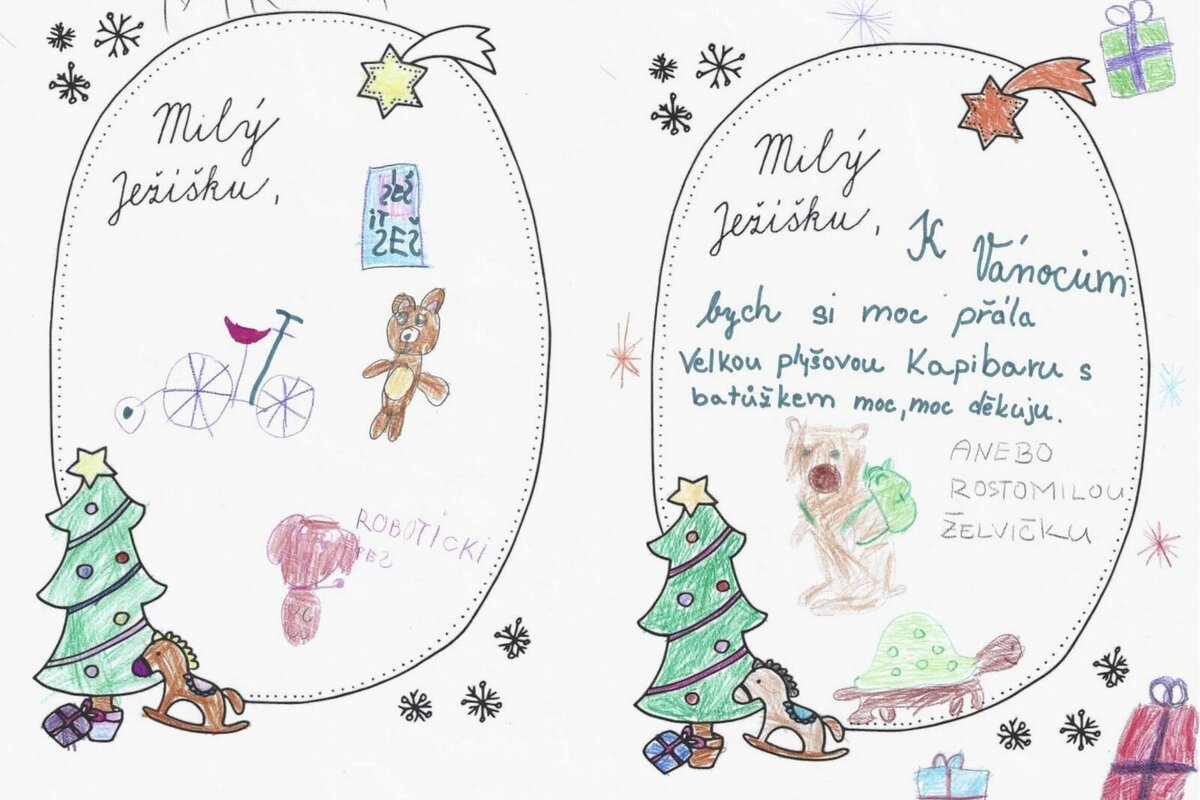 Milý
Ježišku,
SEŠ
iT
SEŠ
ROBOTICKI
PES
Milý
Ježišku,
K Vánocům
bych si moc přála
Velkou plyšovou Kapibaru s
batůžkem moc, moc děkuju.
ANEBO
ROSTOMILOU
ŽELVIČKU